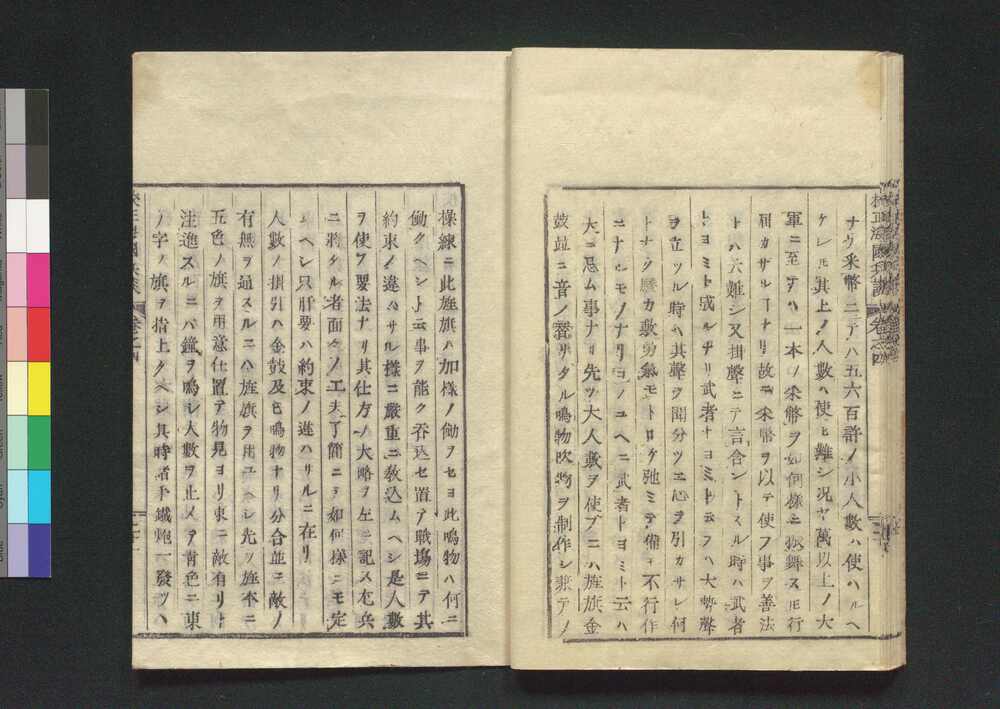 ナク采幣ニテハ五六百許ノ小人數ハ使ハルヘ
ケレ𪜈其上ノ人數ハ使ヒ難シ況ヤ萬以上ノ大
軍ニ至テハ一本ノ采幣ヲ如何樣ニ振舞ス𪜈行
利カザルヿナリ故ニ采幣ヲ以テ使フ事ヲ善法
トハ六難シ又掛聲ニテ言合ントスル時ハ武者
トヨミト成ルナリ武者トヨミト云フハ大勢聲
ヲ立ツル時ハ其聲ヲ聞分ツニ心ヲ引カサレ何
トナク騒カ敷勇氣モトロケ弛ミテ備モ不行作
ニナルモノナリヨノユヘニ武者トヨミト云ハ
大ニ忌ム事ナリ先ツ大人數ヲ使フニハ旌旗金
鼓並ニ音ノ替リタル鳴物吹物ヲ制作シ兼テノ
操練ニ此旌旗ハ加樣ノ働ヲセヨ此鳴物ハ何ニ
働クヘシト云事ヲ能ク呑込セ置テ戰場ニテ其
約束ノ違ハサル樣ニ嚴重ニ敎込ムヘシ是人數
ヲ使フ要法ナリ其仕方ノ大略ヲ左ニ記ス尤兵
ニ將タル者面々ノ工夫了簡ニテ如何樣ニモ定
ムヘシ只肝要ハ約束ノ違ハサルニ在リ
人數ノ掛引ハ金鼓及ヒ鳴物ナリ分合並ニ敵ノ
有無ヲ通スルニハ旌旗ヲ用ユヘシ先ツ旌本ニ
五色ノ旗ヲ用意仕置テ物見ヨリ東ニ敵有リト
注進スルニハ鐘ヲ鳴シ人數ヲ止メテ青色ニ東
ノ字ノ旗ヲ指上クヘシ其時諸手鐵炮一發ツヽ